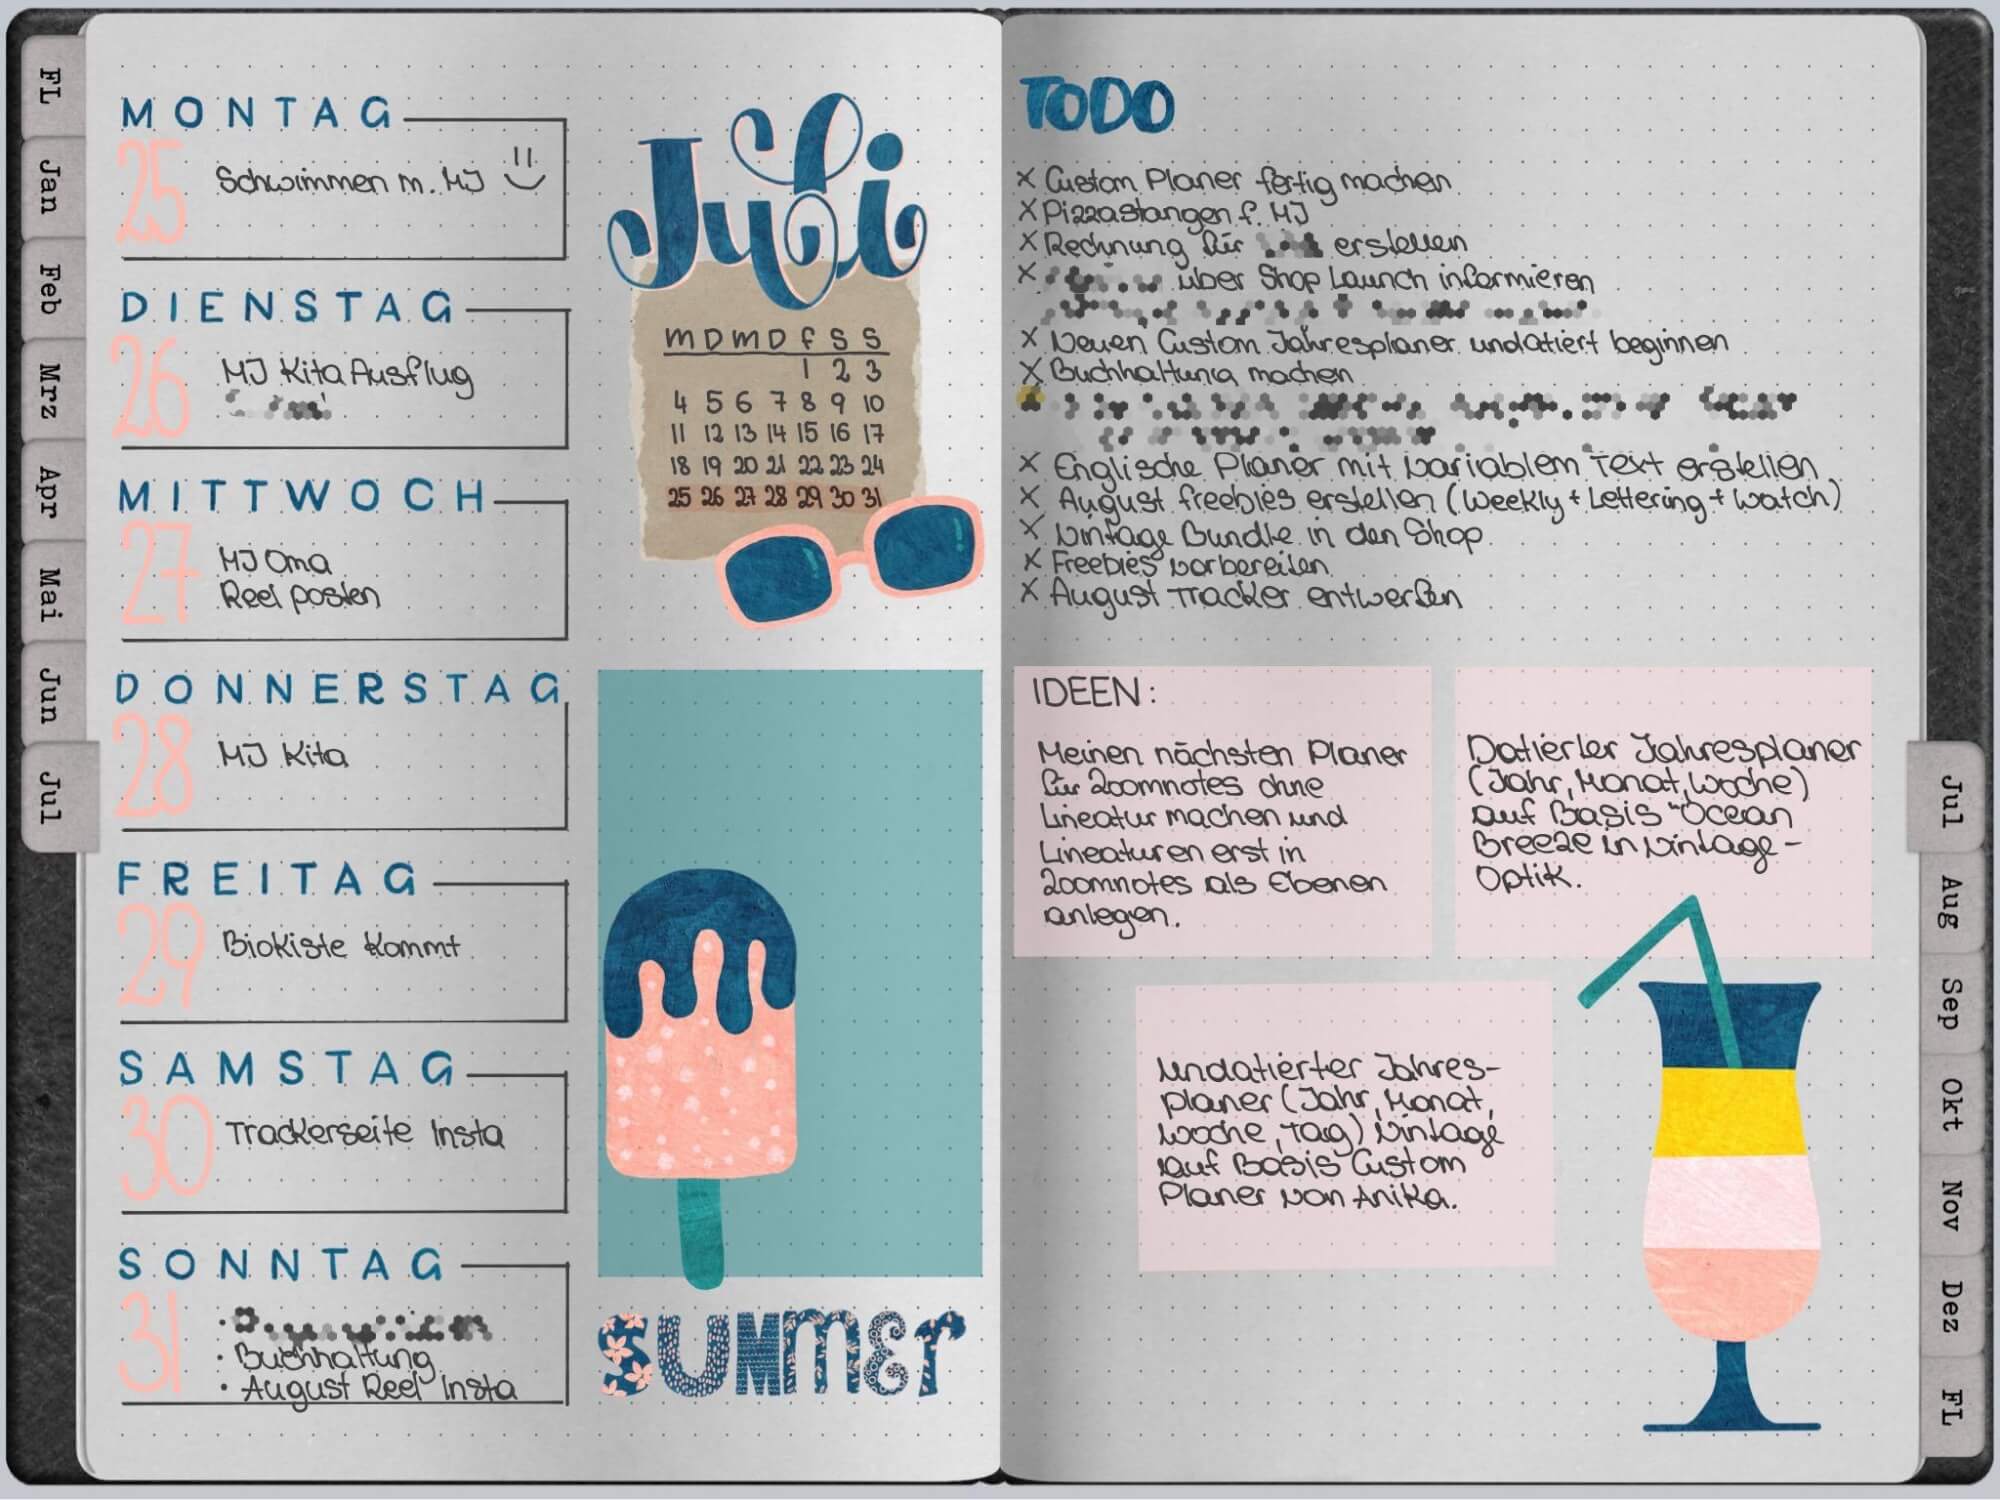 FL
Jan
Feb
Mrz
Apr
Mai
Jun
Jul
MONTAG
25
Schwimmen m. MJ
DIENSTAG
26
MJ Kita Ausflug
MITTWOCH
27
MJ Oma
Reel posten
DONNERSTAG
28
MJ Kita
FREITAG
29
Biokiste kommt
SAMSTAG
30
Trackerseite Insta
SONNTAG
31
• Buchhaltung
• August Reel Insta
Juli
M D M D F S S
1 2 3
4 5 6 7 8 9 10
11 12 13 14 15 16 17
18 19 20 21 22 23 24
25 26 27 28 29 30 31
SUMMER
TODO
x Custom Planer fertig machen
x Pizzastangen f. MJ
x Rechnung für erstellen
x über Shop Launch informieren
x Neuen Custom Jahresplaner undatiert beginnen
x Buchhaltung machen
x Englische Planer mit variablem Text erstellen
x August freebies erstellen (Weekly + Lettering + Watch)
x Vintage Bundle in den Shop
x Freebies vorbereiten
x August Tracker entwerfen
IDEEN:
Meinen nächsten Planer
für Zoomnotes ohne
Lineatur machen und
Lineaturen erst in
Zoomnotes als Ebenen
anlegen.
Datierter Jahresplaner
(Jahr, Monat, Woche)
auf Basis "Ocean
Breeze in Vintage-
Optik.
Undatierter Jahres-
planer (Jahr, Monat,
Woche, Tag) Vintage
auf Basis Custom
Planer von Anika.
Jul
Aug
Sep
Okt
Nov
Dez
FL